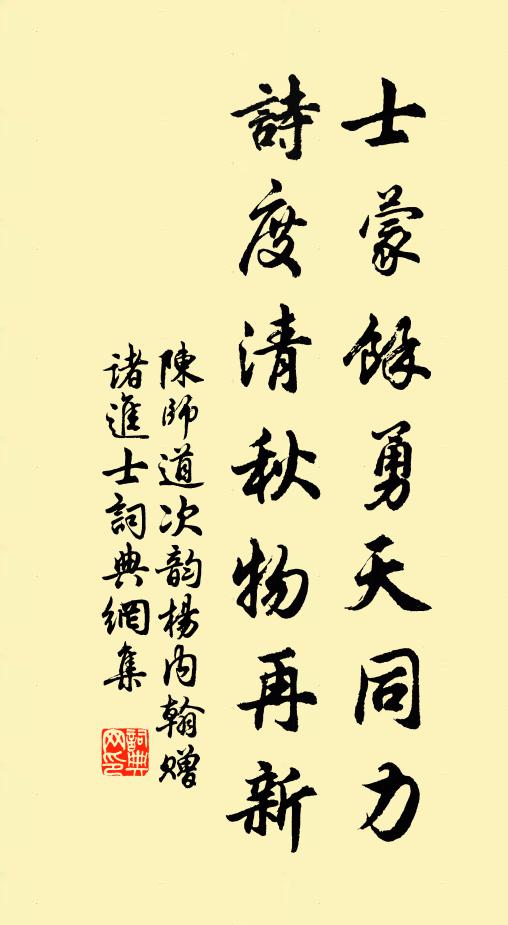 士蒙餘勇天同力
詩度清秋物再新
陳師道次韵楊内翰贈
諸進士詞典網集
詞典网印